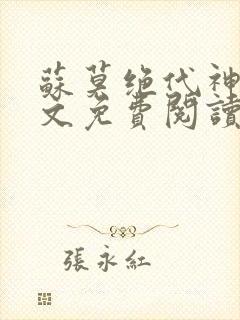 蘇莫絕代神
文免費閱讀
張永紅